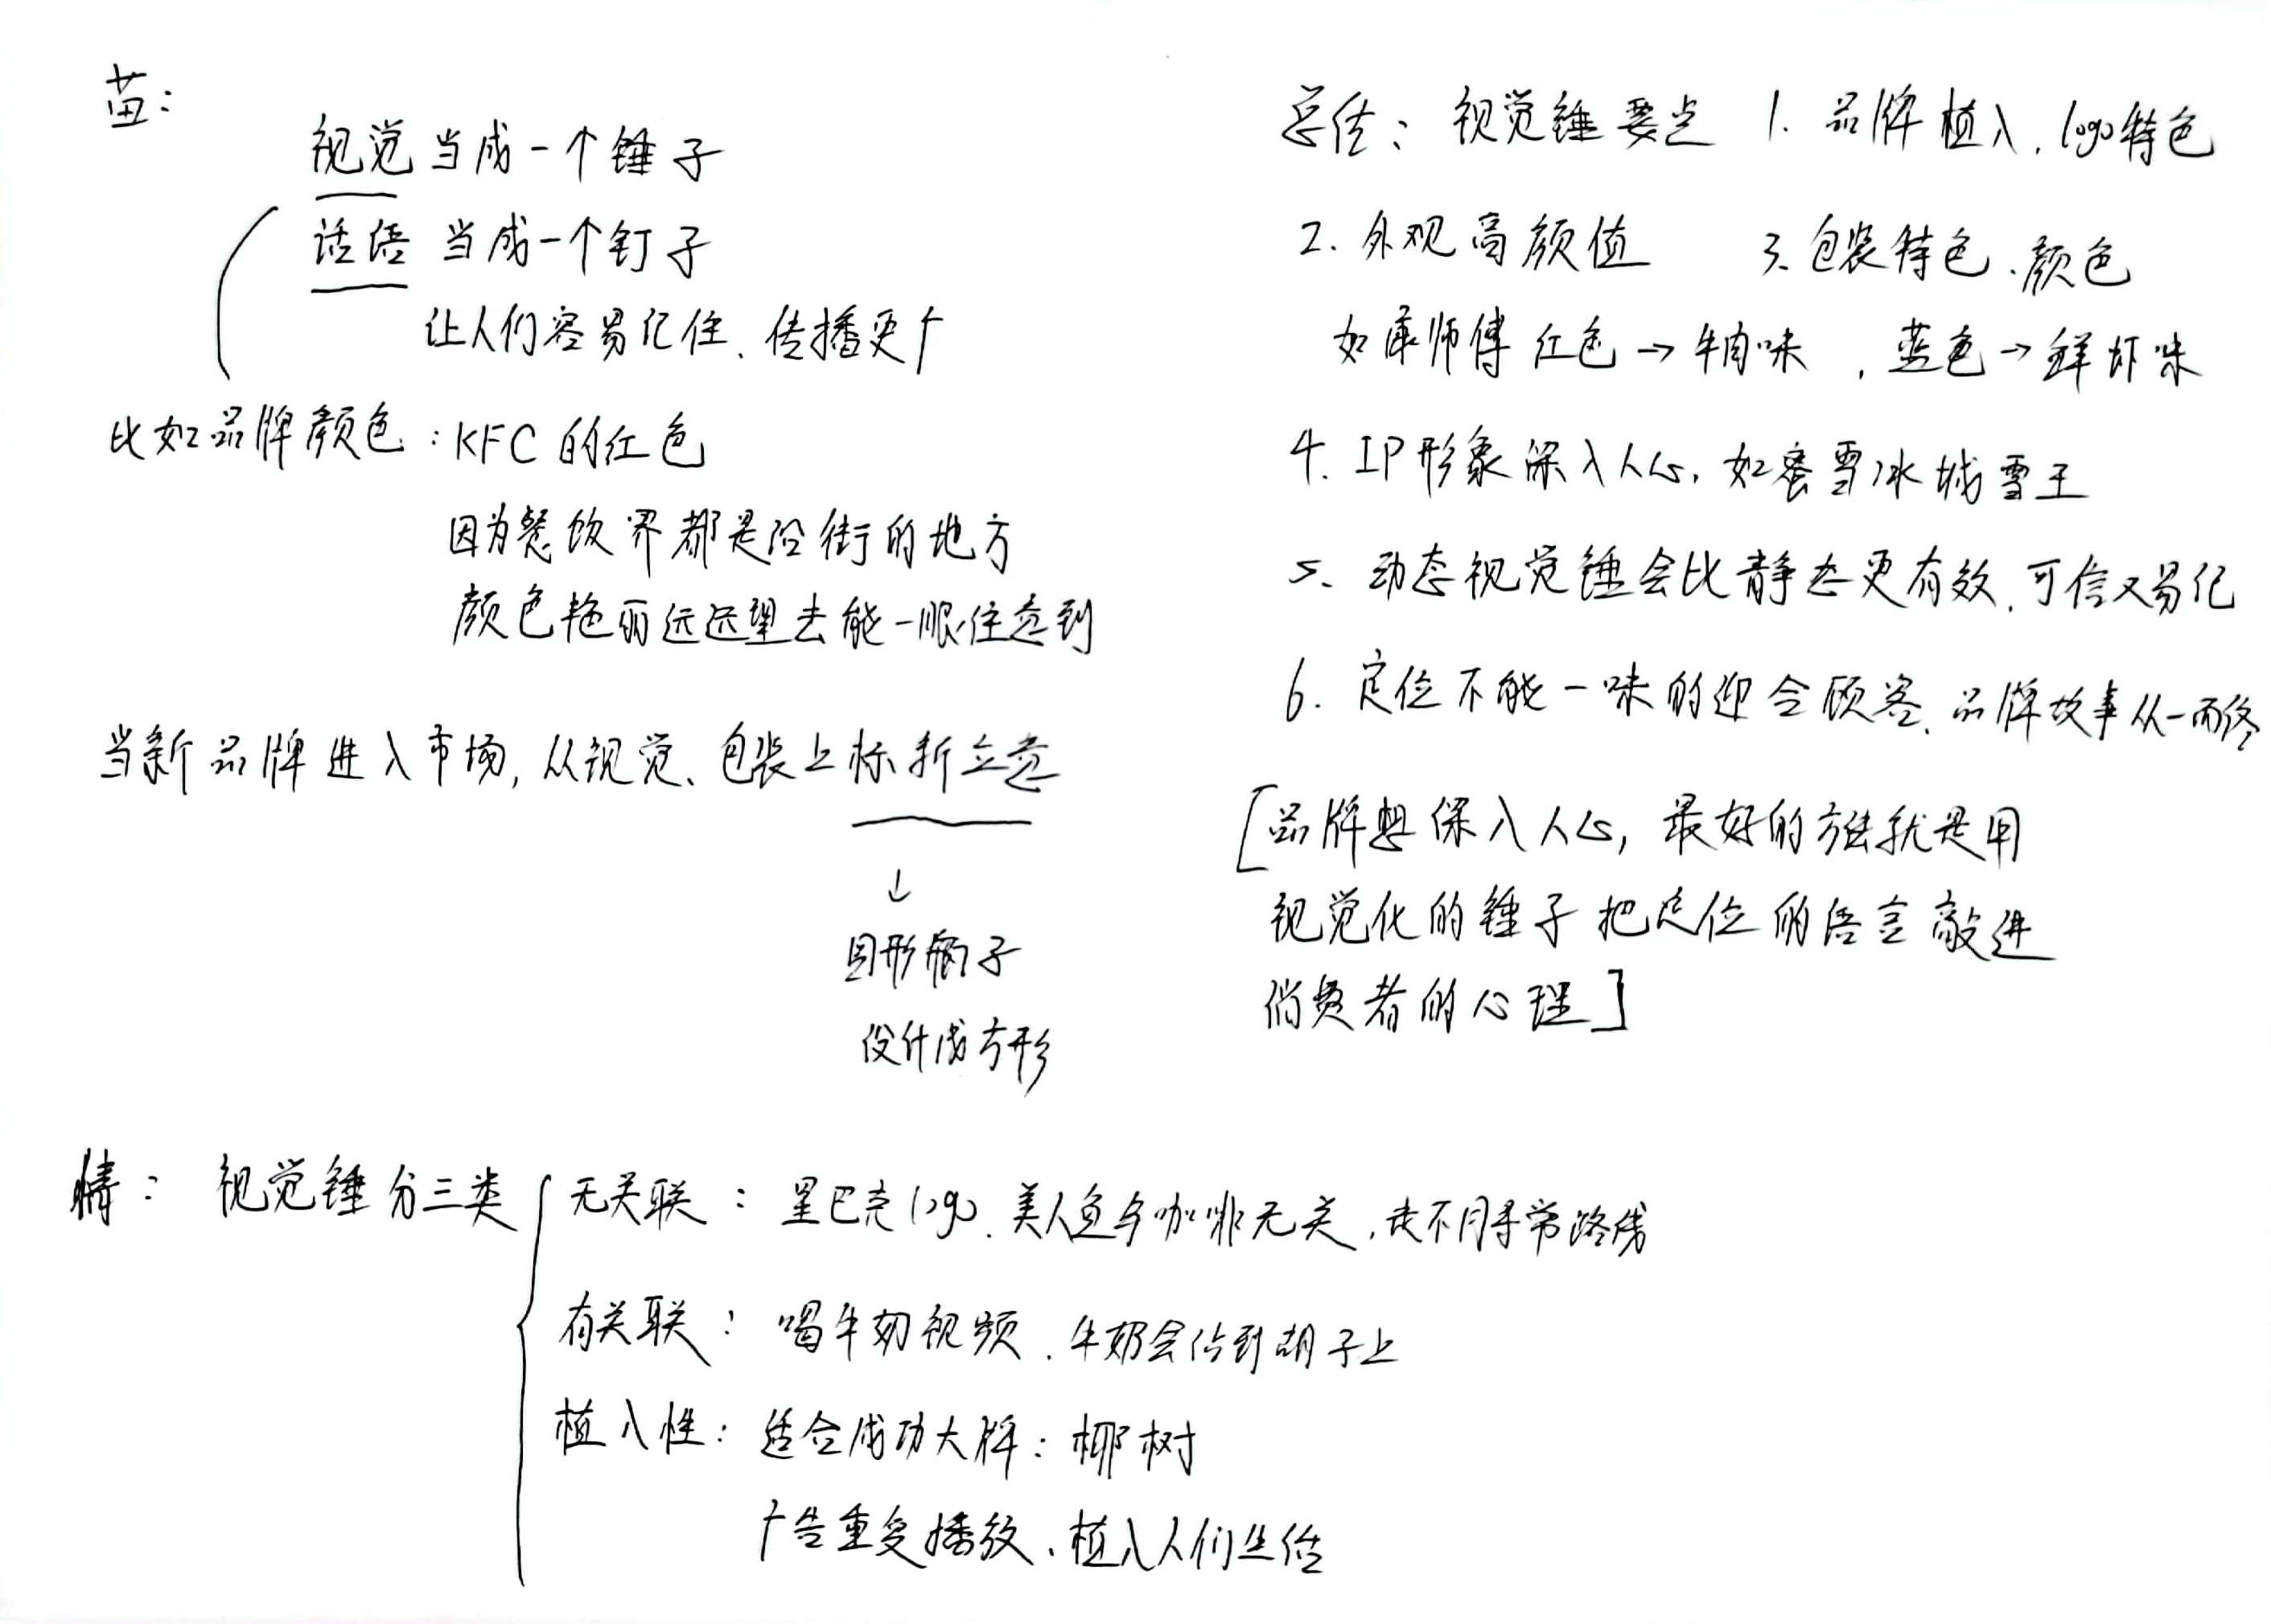 苗：
视觉当成一个锤子
话语 当成一个钉子
让人们容易记住、传播更广
比如品牌颜色：KFC的红色
因为餐饮界都是沿街的地方
颜色艳丽远远望去能一眼注意到
当新品牌进入市场，从视觉、包装上标新立意
↓
圆形瓶子
设计成方形
总结：视觉锤要点 1. 品牌植入，logo特色
2. 外观高颜值 3. 包装特色、颜色
如康师傅 红色→牛肉味，蓝色→鲜虾味
4. IP形象深入人心，如蜜雪冰城雪王
5、动态视觉锤会比静态更有效，可信又易记
6. 定位不能一味的迎合顾客、品牌故事从一而终
[品牌想深入人心，最好的方法就是用
视觉化的锤子把定位的语言敲进
消费者的心理]
情：视觉锤分三类
无关联：星巴克logo、美人鱼与咖啡无关，走不同寻常路线
有关联：喝牛奶视频、牛奶会沾到胡子上
植入性：适合成功大牌：椰树
广告重复播放、植入人们生活